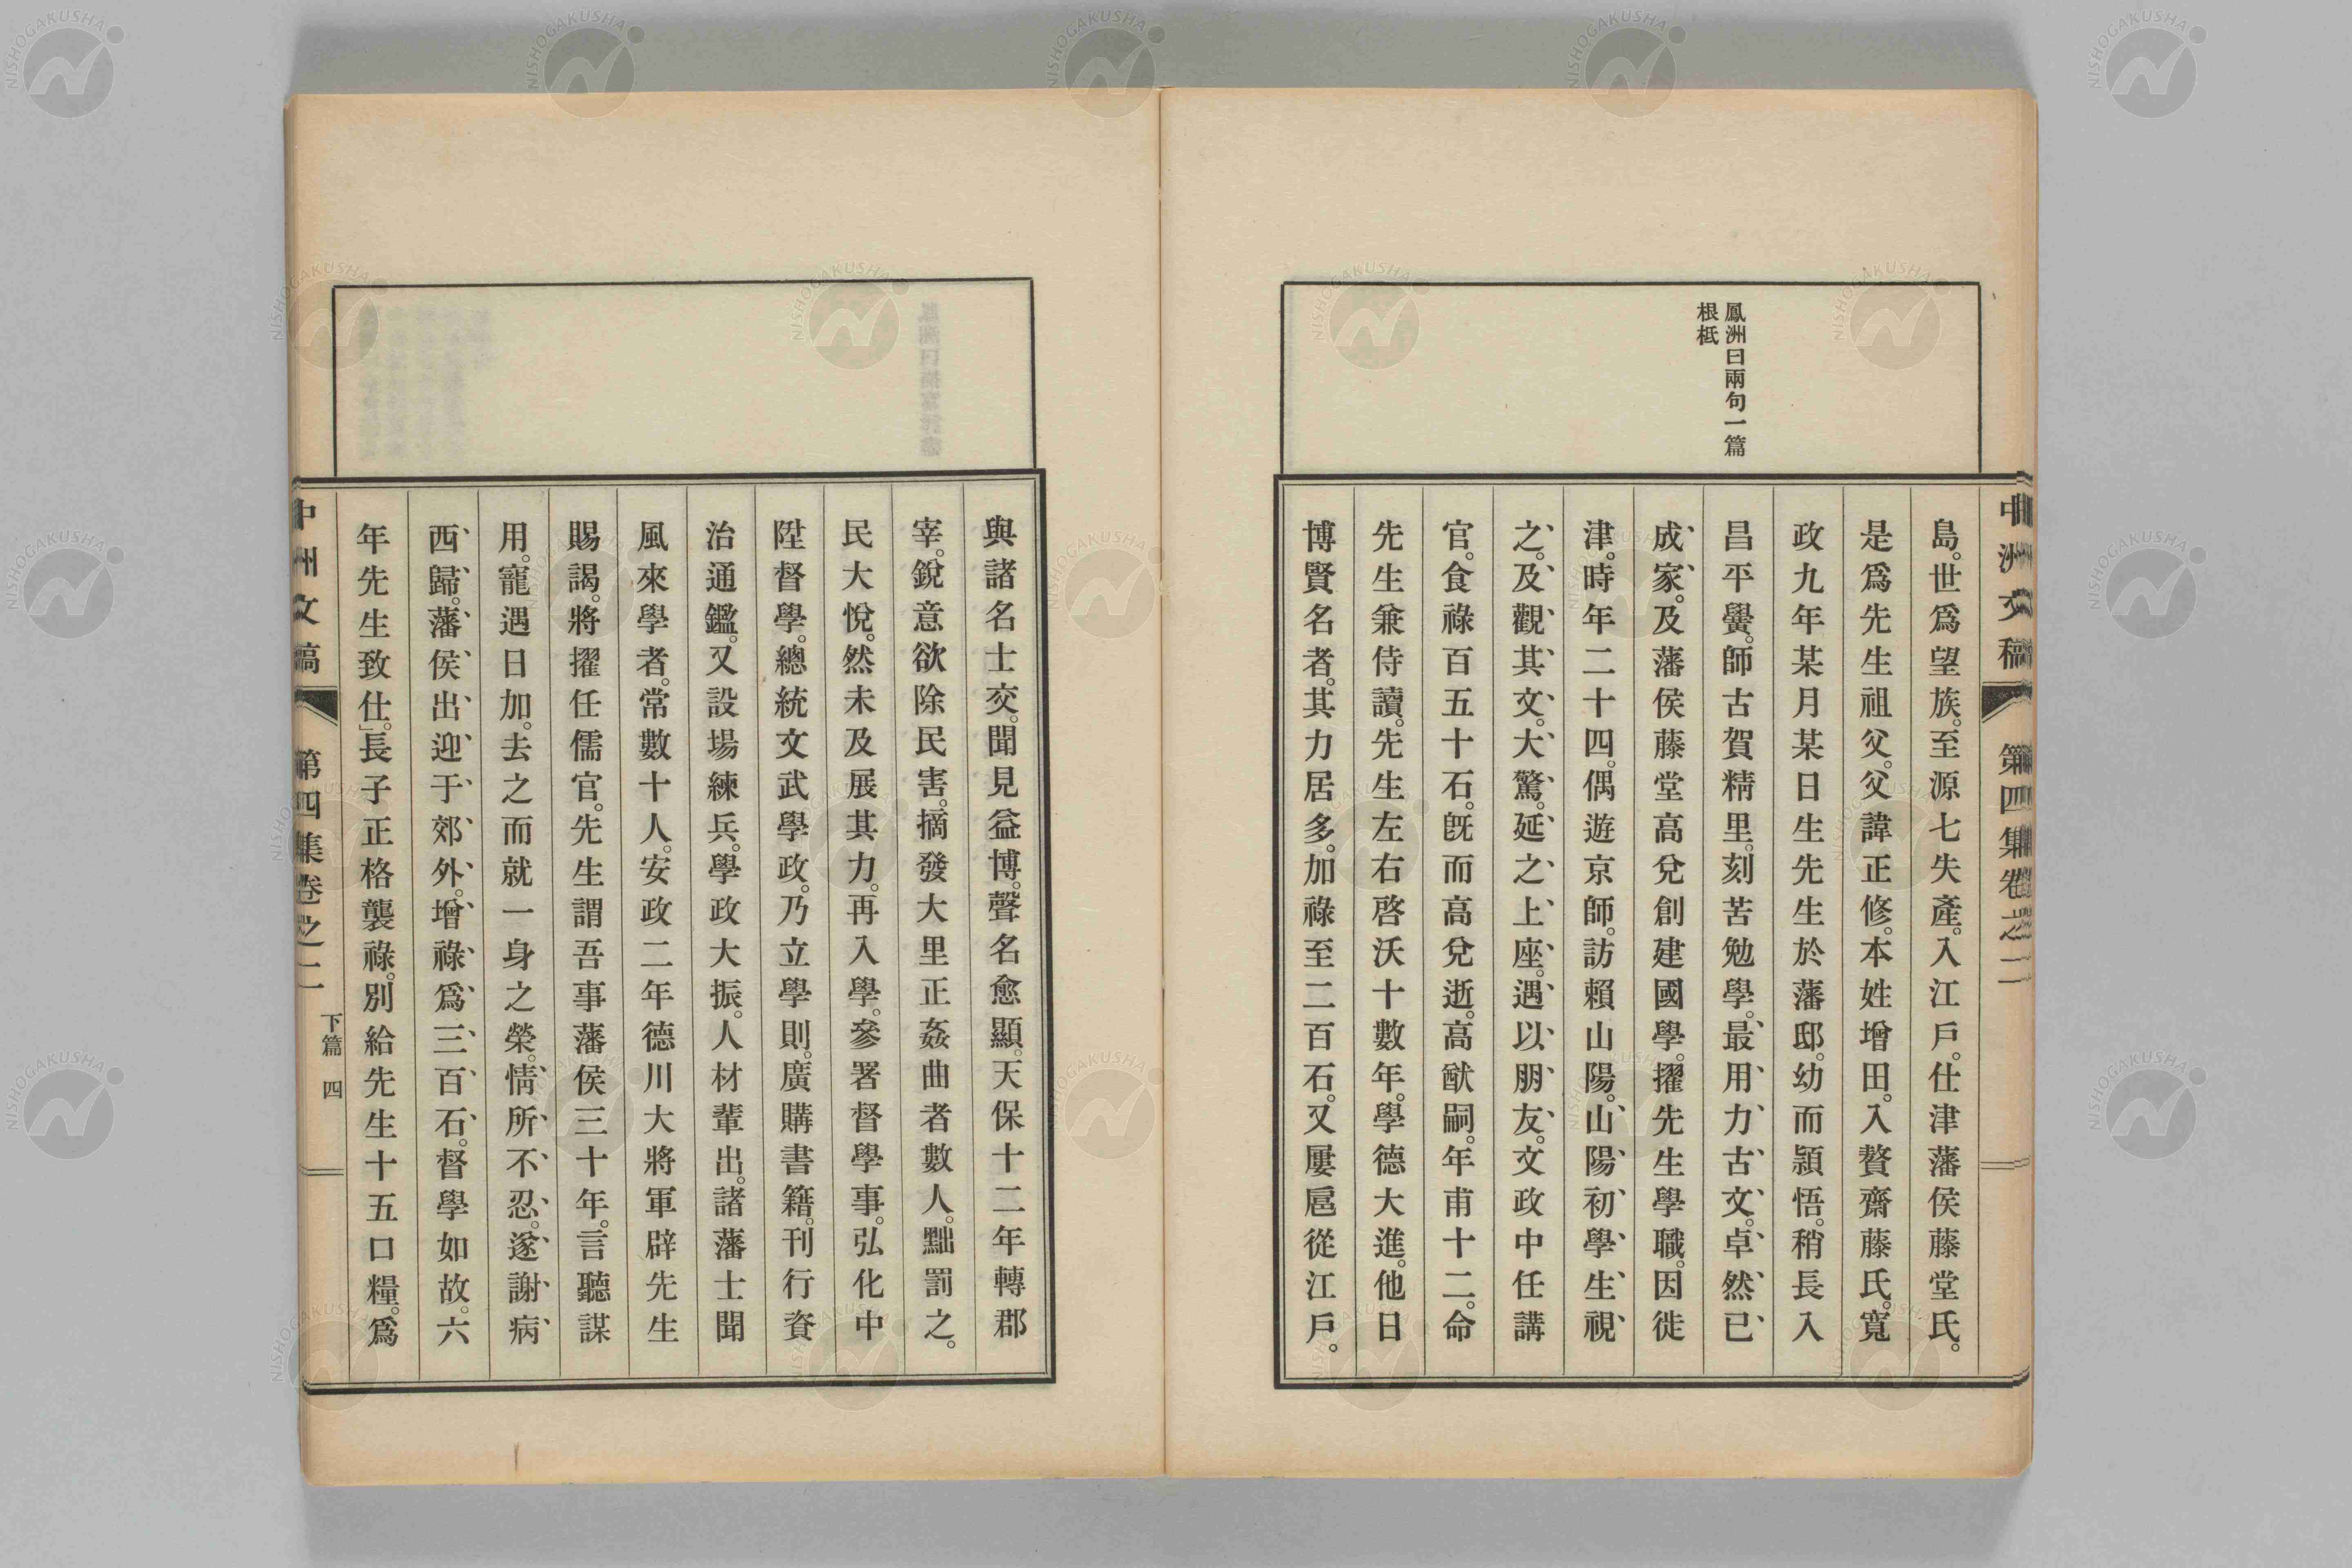 鳳洲曰兩句一篇
根柢
中洲文稿 第四集卷之二
島。世爲望族。至源七失產。入江戶。仕津藩侯藤堂氏。
是爲先生祖父。父諱正修。本姓增田。入贅齋藤氏。寬
政九年某月某日生先生於藩邸。幼而頴悟。稍長入
昌平黌。師古賀精里。刻苦勉學。最用力古文。卓然已
成家。及藩侯藤堂高兌創建國學。擢先生學職。因徙
津。時年二十四。偶遊京師。訪賴山陽。山陽初學生視
之。及觀其文。大驚。延之上座。遇以朋友。文政中任講
官。食祿百五十石。旣而高兌逝。高猷嗣。年甫十二。命
先生兼侍讀。先生左右啓沃十數年。學德大進。他日
博賢名者。其力居多。加祿至二百石。又屢扈從江戶。
與諸名士交。聞見益博。聲名愈顯。天保十二年轉郡
宰。銳意欲除民害。摘發大里正姦曲者數人。黜罰之。
民大悅。然未及展其力。再入學。參署督學事。弘化中
陞督學。總統文武學政。乃立學則。廣購書籍。刊行資
治通鑑。又設場練兵。學政大振。人材輩出。諸藩士聞
風來學者。常數十人。安政二年德川大將軍辟先生
賜謁。將擢任儒官。先生謂吾事藩侯三十年。言聽謀
用。寵遇日加。去之而就一身之榮。情所不忍。遂謝病
西歸。藩侯出迎于郊外。增祿爲三百石。督學如故。六
年先生致仕。」長子正格襲祿。別給先生十五口糧。爲
中洲文稿 第四集卷之二 下篇 四
NISHOGAKUSHA